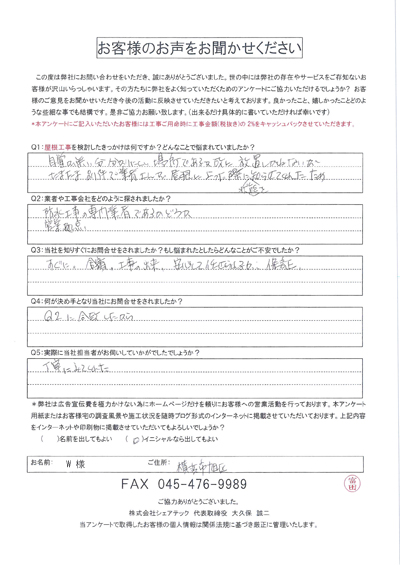 お客様のお声をお聞かせください
この度は弊社にお問い合わせをいただき、誠にありがとうございました。世の中には弊社の存在やサービスをご存知ないお
客様が沢山いらっしゃいます。その方たちに弊社をよく知っていただくためのアンケートにご協力いただけるでしょうか？ お客
様のご意見をお聞かせいただき今後の活動に反映させていただきたいと考えております。良かったこと、嬉しかったことどのよ
うな些細な事でも結構です。是非ご協力お願い致します。（出来るだけ具体的に書いていただければ幸いです）
*本アンケートにご記入いただいたお客様には工事ご用命時に工事金額(税抜き)の2%をキャッシュバックさせていただきます。
Q1：屋根工事を検討したきっかけは何ですか？どんなことで悩まれていましたか？
Q2：業者や工事会社をどのように探されましたか？
防水工事の専門業者であるかどうか
営業拠点
Q3：当社を知りすぐにお問合せをされましたか？もし悩まれたとしたらどんなことがご不安でしたか？
すぐに。金額、工事の出来、安心して任せられるか、保証
Q4：何が決め手となり当社にお問合せをされましたか？
Q2に合致したから
Q5：実際に当社担当者がお伺いしていかがでしたでしょうか？
丁寧にみてくれた
＊弊社は広告宣伝費を極力かけない為にホームページだけを頼りにお客様への営業活動を行っております。本アンケート
用紙またはお客様宅の調査風景や施工状況を随時ブログ形式のインターネットに掲載させていただいております。上記内容
をインターネットや印刷物に掲載させていただいてもよろしいでしょうか？
（ ）名前を出してもよい （○）イニシャルなら出してもよい
お名前： W 様 ご住所： 横浜市旭区
FAX 045-476-9989
ご協力ありがとうございました。
株式会社シェアテック 代表取締役 大久保 誠二
当アンケートで取得したお客様の個人情報は関係法規に基づき厳正に管理いたします。